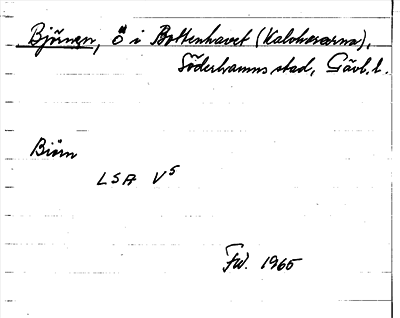 Björnen, ö i Bottenhavet (Kalvhararna),
Söderhamns stad, Gävl. l.
Biörn
LSA V5
FW. 1965